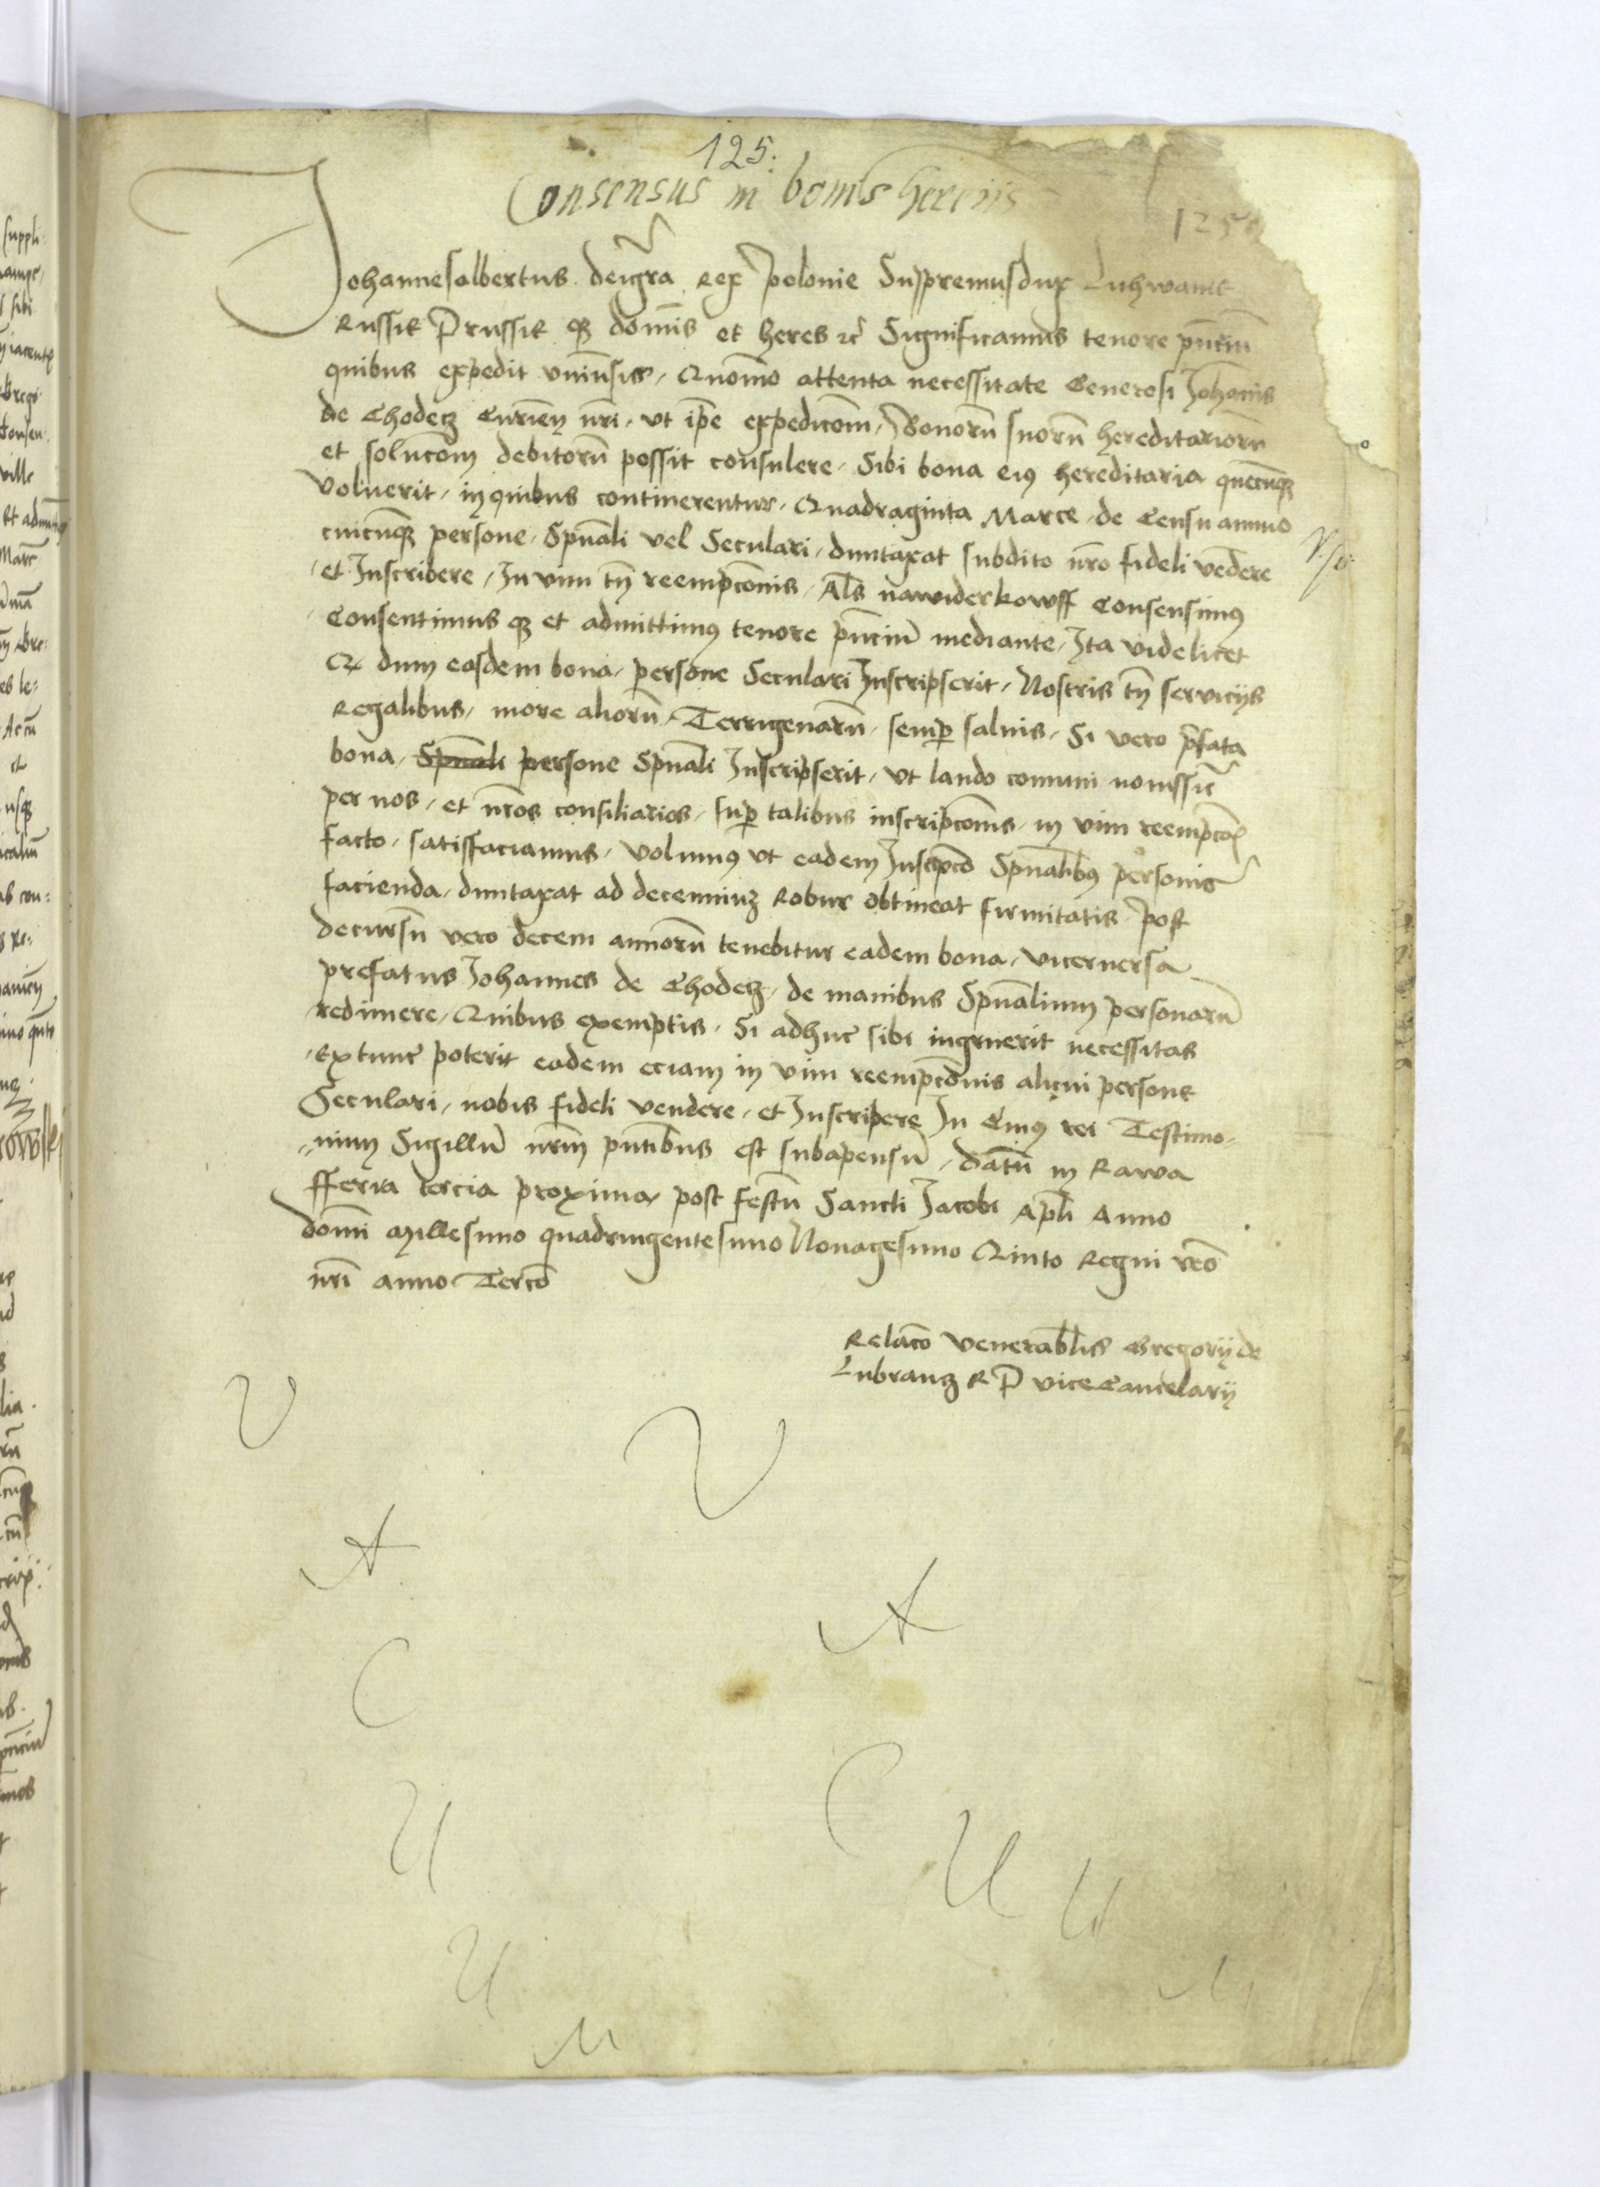 125.
Consensus in bonis
125
Johannesalbertus deigra Rex Polonie Suppremusdux Luhwanie
Russie Prussie qz domis et heres rc Significamus tenore pntiu
quibus expedit vniusis, Quomo attenta necessitate Generosi Johanis
de Chodecz Curien nri, vt ipe expedicom, Bonoru suoru hereditarioru
et solucom debitoru possit consulere, Sibi bona eius hereditaria quecunqz
voluerit, in quibus continerentur, Quadraginta Marce, de Censu annuo
cuicunqz persone, Spuali vel Seculari, duntaxat subdito nro fideli vedere
et Inscribere, In vim tn reempconis, Als nawiderkowff Consensimus
Consentimus qz et admittimus tenore pntium mediante, Ita videlicet
Q dum easdem bona, persone Seculari Inscripserit, Nostris tn serviciis
Regalibus, more alioru, Terrigenaru, semp salvis, Si vero pfata
bona, Spuali persone Spuali Inscripserit, vt laudo comuni novissie
per nos, et nros consiliarios, sup talibus inscripconis, in vim reempcois
facto, satisfaciamus, volumus vt eadem Inscpco Spualibus personis
facienda, duntaxat ad decenniuz Robur obtineat firmitatis, Post
decursu vero decem annoru tenebitur eadem bona, viceversa
prefatus Johannes de Chodecz, de manibus Spualium personaru
redimere, Quibus exemptis, Si adhuc sibi ingruerit necessitas
Extunc poterit eadem eciam in vim reempconis alicui persone
Seculari, nobis fideli vendere, et Inscribere In Cuius rei Testimo-
nium Sigillu nrm pntibus est subapensu, datu in Rawa
fferia tercia proxima, post festu Sancti Jacobi Apli Anno
domi Millesimo quadringentesimo Nonagesimo Quinto Regni vero
nri anno Terco
Relaco venerablis Gregorij de
Lubrancz R P viceCancelarij
V V
A A
C C
U U U
U M
M